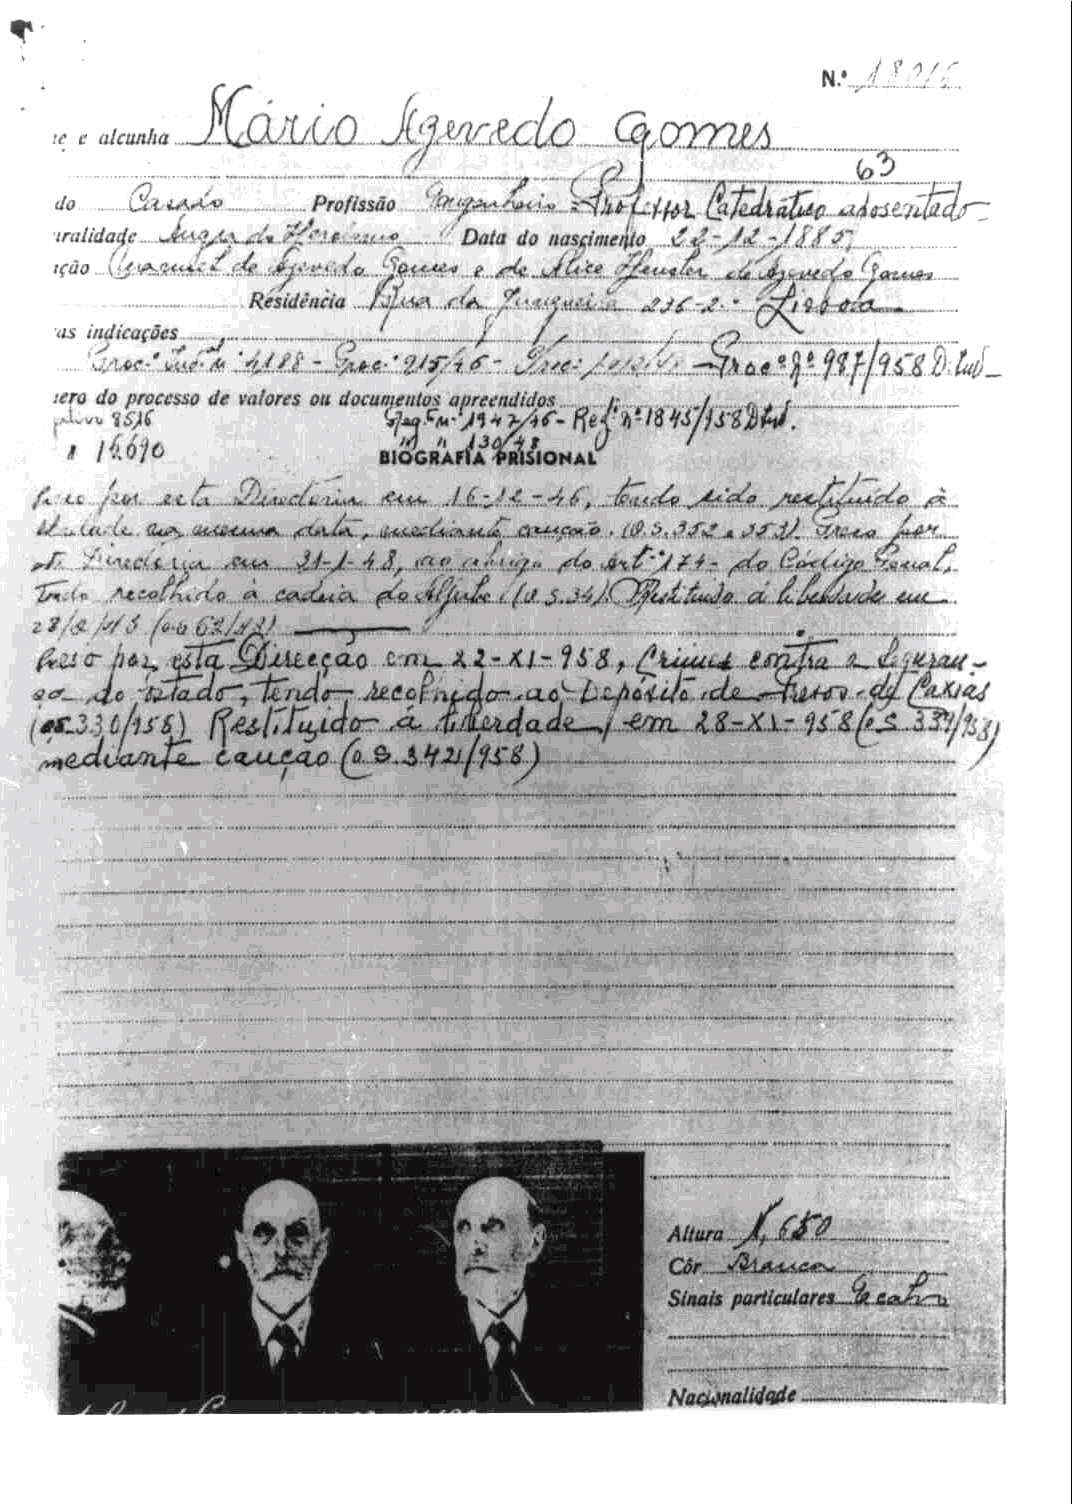 N.º 18016
e e alcunha Mário Azevedo Gomes
63
do Casado Profissão Engenheiro - Professor Catedrático aposentado -
uralidade Data do nascimento 22-12-1885
ção Manuel de Azevedo Gomes e de Alice de Azevedo Gomes
Residência Rua da Junqueira 236-2.º Lisboa
as indicações
Proc.º 4188 - Proc.º 915/46 - Proc.º - Proc.º Nº 987/958 D.
ero do processo de valores ou documentos apreendidos
8516 nº 1947/46 - Regº nº 1845/958
" 15.690 " " 130/48
BIOGRAFIA PRISIONAL
por esta Directoria em 16-12-46, tendo sido restituído à
na mesma data, mediante caução. (O.S. 352 e 353) Preso por
Directoria em 31-1-48, ao abrigo do Artº 174- do Código Penal,
Tendo recolhido à cadeia do Aljube (O.S. 34) Restituído à liberdade em
Preso por esta Direcção em 22-XI-958, Crimes contra a Seguran-
ça do Estado, tendo recolhido ao Depósito de Presos de Caxias
(os 330/958) Restituido á liberdade, em 28-XI-958 (o.S. 339/958)
mediante caução (o.S. 3421/958)
Altura 1,650
Côr Branca
Sinais particulares
Nacionalidade